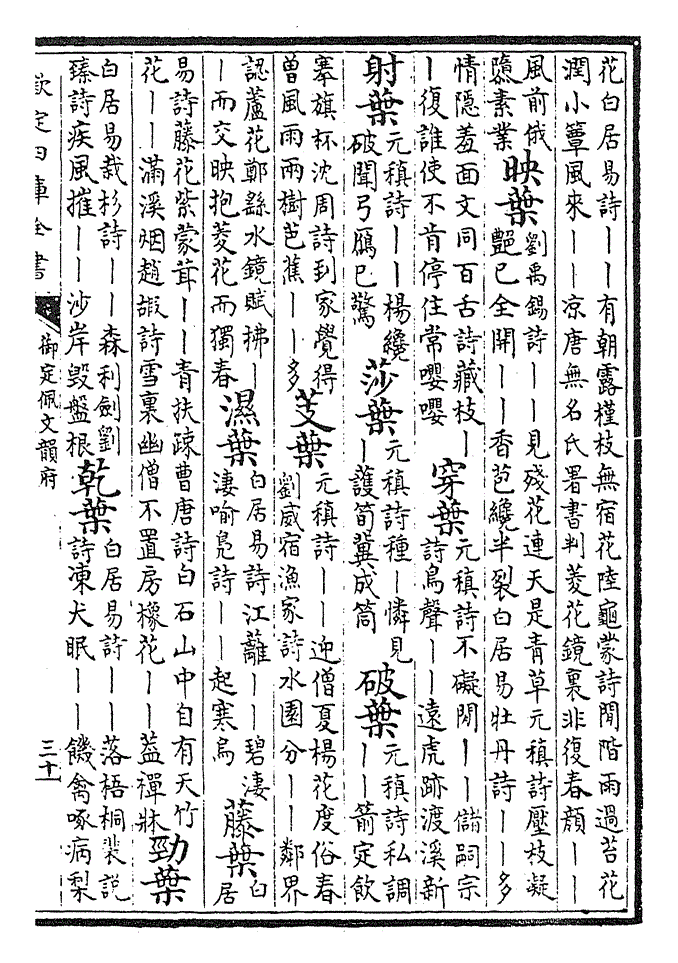 花白居易詩｜｜有朝露槿枝無宿花陸龜蒙詩閒階雨過苔花
潤小簟風來｜｜凉唐無名氏署書判菱花鏡裏非復春顏｜｜
風前俄
隳素業
映葉
劉禹錫詩｜｜見殘花連天是青草元稹詩壓枝凝
艷已全開｜｜香苞纔半裂白居易牡丹詩｜｜多
情隱羞面文同百舌詩藏枝｜
｜復誰使不肯停住常嚶嚶
穿葉
元稹詩不礙閒｜｜儲嗣宗
詩鳥聲｜｜遠虎跡渡溪新
射葉
元稹詩｜｜楊纔
破聞弓鴈已驚
莎葉
元稹詩種｜憐見
｜護筍冀成筒
破葉
元稹詩私調
｜｜箭定飲
搴旗杯沈周詩到家覺得
曾風雨兩樹芭蕉｜｜多
芰葉
元稹詩｜｜迎僧夏楊花度俗春
劉威宿漁家詩水園分｜｜鄰界
認蘆花鄭繇水鏡賦拂｜
｜而交映抱菱花而獨春
濕葉
白居易詩江蘺｜｜碧凄
淒喻鳧詩｜｜起寒烏
藤葉
白
居
易詩藤花紫蒙茸｜｜青扶疎曹唐詩白石山中自有天竹
花｜｜滿溪烟趙嘏詩雪裏幽僧不置房橡花｜｜蓋禪牀
勁葉
白居易栽杉詩｜｜森利劍劉
臻詩疾風摧｜｜沙岸毀盤根
乾葉
白居易詩｜｜落梧桐裴説
詩凍犬眠｜｜饑禽啄病梨
欽定四庫全書
御定佩文韻府
三十